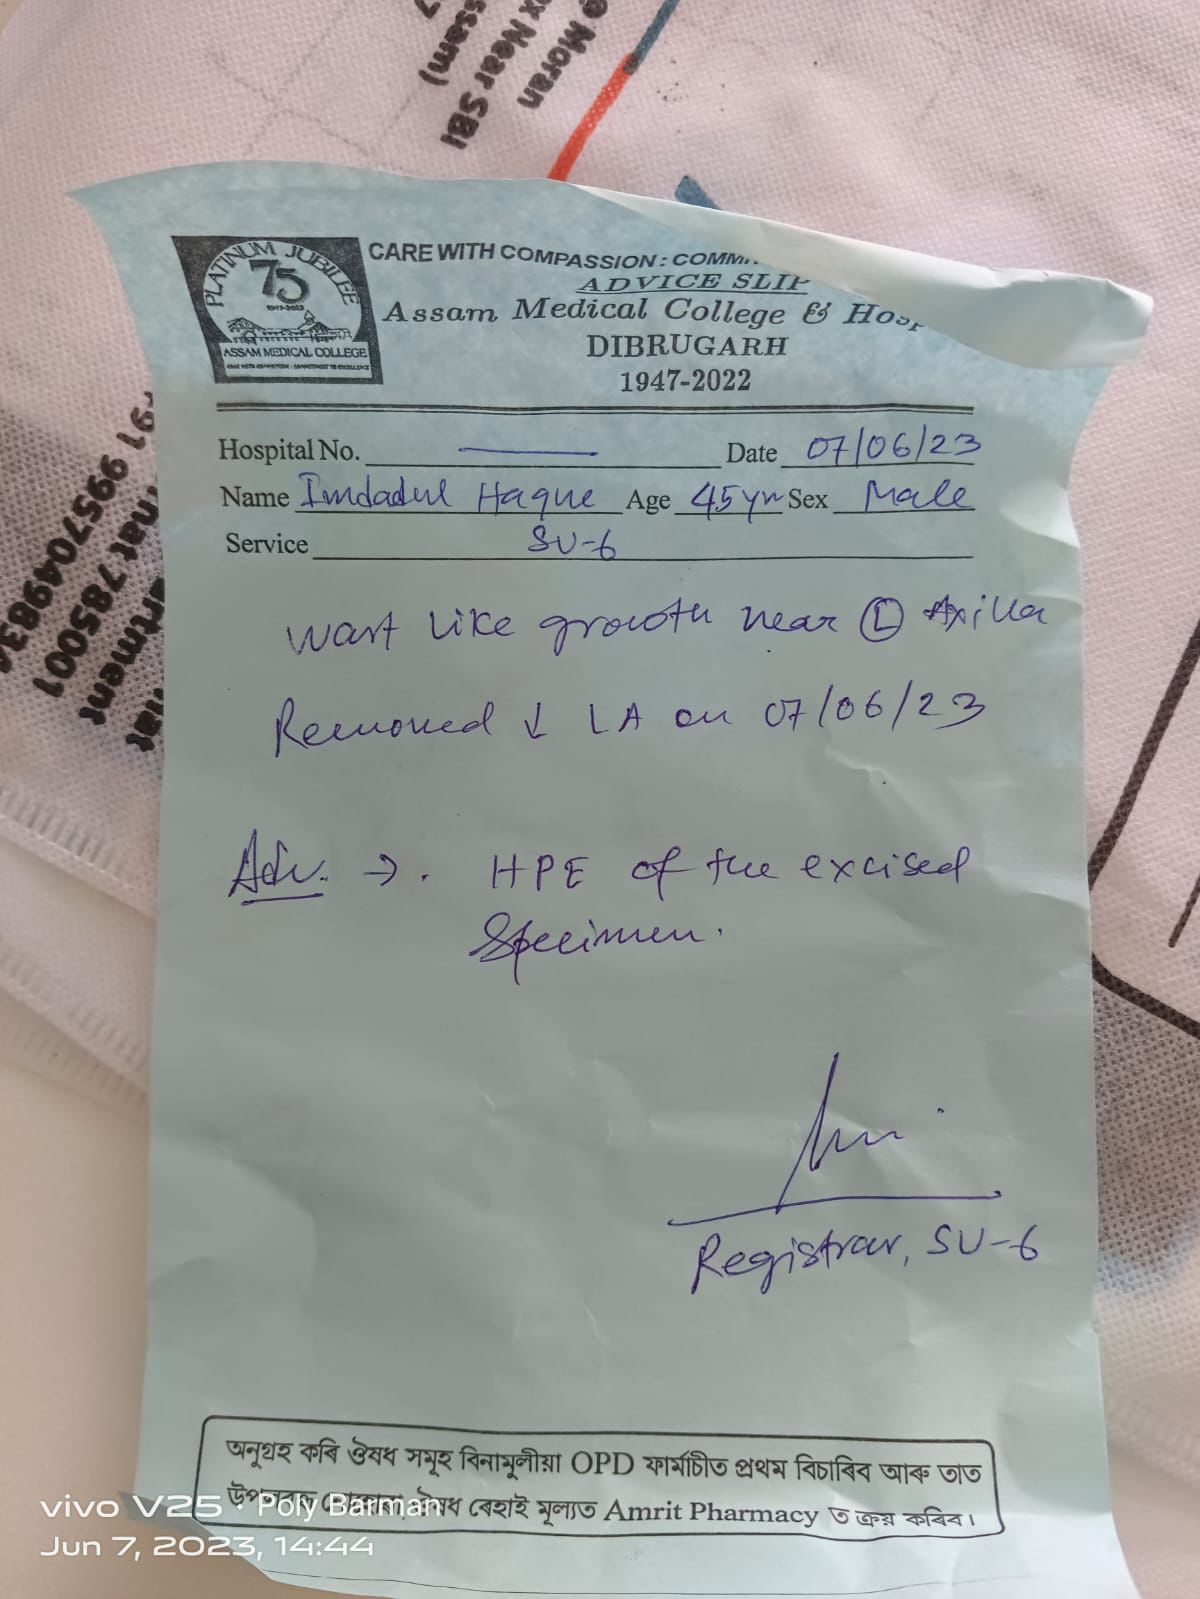 e Moran
ex Near SBI
ssam)
PLATINUM JUBILEE
75
1947-2022
ASSAM MEDICAL COLLEGE
CARE WITH COMPASSION : COMM
ADVICE SLIP
Assam Medical College & Hosp
DIBRUGARH
1947-2022
Hospital No. Date 07/06/23
Name Imdadul Haque Age 45yrs Sex Male
Service SU-6
wart like growth near Ⓛ Axilla
Removed ↓ LA on 07/06/23
Adv. → . HPE of the excised
Specimen.
Registrar, SU-6
অনুগ্ৰহ কৰি ঔষধ সমূহ বিনামূলীয়া OPD ফাৰ্মাচীত প্ৰথম বিচাৰিব আৰু তাত
ঔষধ ৰেহাই মূল্যত Amrit Pharmacy ত ক্ৰয় কৰিব।
vivo V25 · Poly Barman
Jun 7, 2023, 14:44
hat 785001
artment